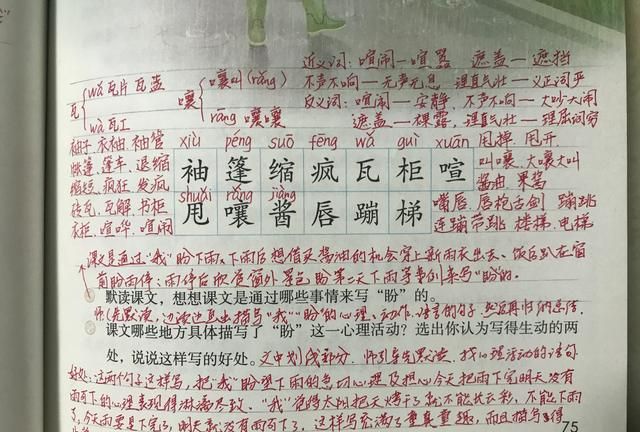 近义词：喧闹—喧嚣 遮盖—遮挡
wǎ 瓦片 瓦盖 嚷叫(rǎng) 不声不响—无声无息 理直气壮—义正词严
瓦 嚷 反义词：喧闹—安静 不声不响—大吵大闹
wà 瓦工 rāng 嚷嚷 遮盖—裸露 理直气壮—理屈词穷
袖子 衣袖 袖管 xiù péng suō fēng wǎ guì xuān 甩掉 甩开
帐篷 篷车 退缩 袖 篷 缩 疯 瓦 柜 喧 叫嚷 大嚷大叫
缩短 疯狂 发疯 shuǎi rǎng jiàng 酱油 果酱
砖瓦 瓦解 书柜 甩 嚷 酱 唇 蹦 梯 嘴唇 唇枪舌剑 蹦跳
衣柜 喧哗 喧闹 连蹦带跳 楼梯 电梯
课文是通过"我"盼下雨、下雨后想借买酱油的机会穿上新雨衣出去、饭后趴在窗
前盼雨停、雨停后欣赏窗外景色盼第二天下雨等事例来写"盼"的。
默读课文，想想课文是通过哪些事情来写"盼"的。
师：先默读，边读边画出描写"我""盼"的心理、动作、语言的句子，然后再归纳总结。
课文哪些地方具体描写了"盼"这一心理活动？选出你认为写得生动的两
处，说说这样写的好处。文中划线部分，师引导先默读，找心理活动的语句
好处：这两个句子这样写，把"我"盼望下雨的急切心理及担心今天把雨下完明天没有
雨可下的心理表现得淋漓尽致。"我"觉得太阳把天烤干了就不能长云彩，不能下雨
了，今天要是下完了，明天就没有雨可下了，这样写充满了童真童趣，而且描写得
75